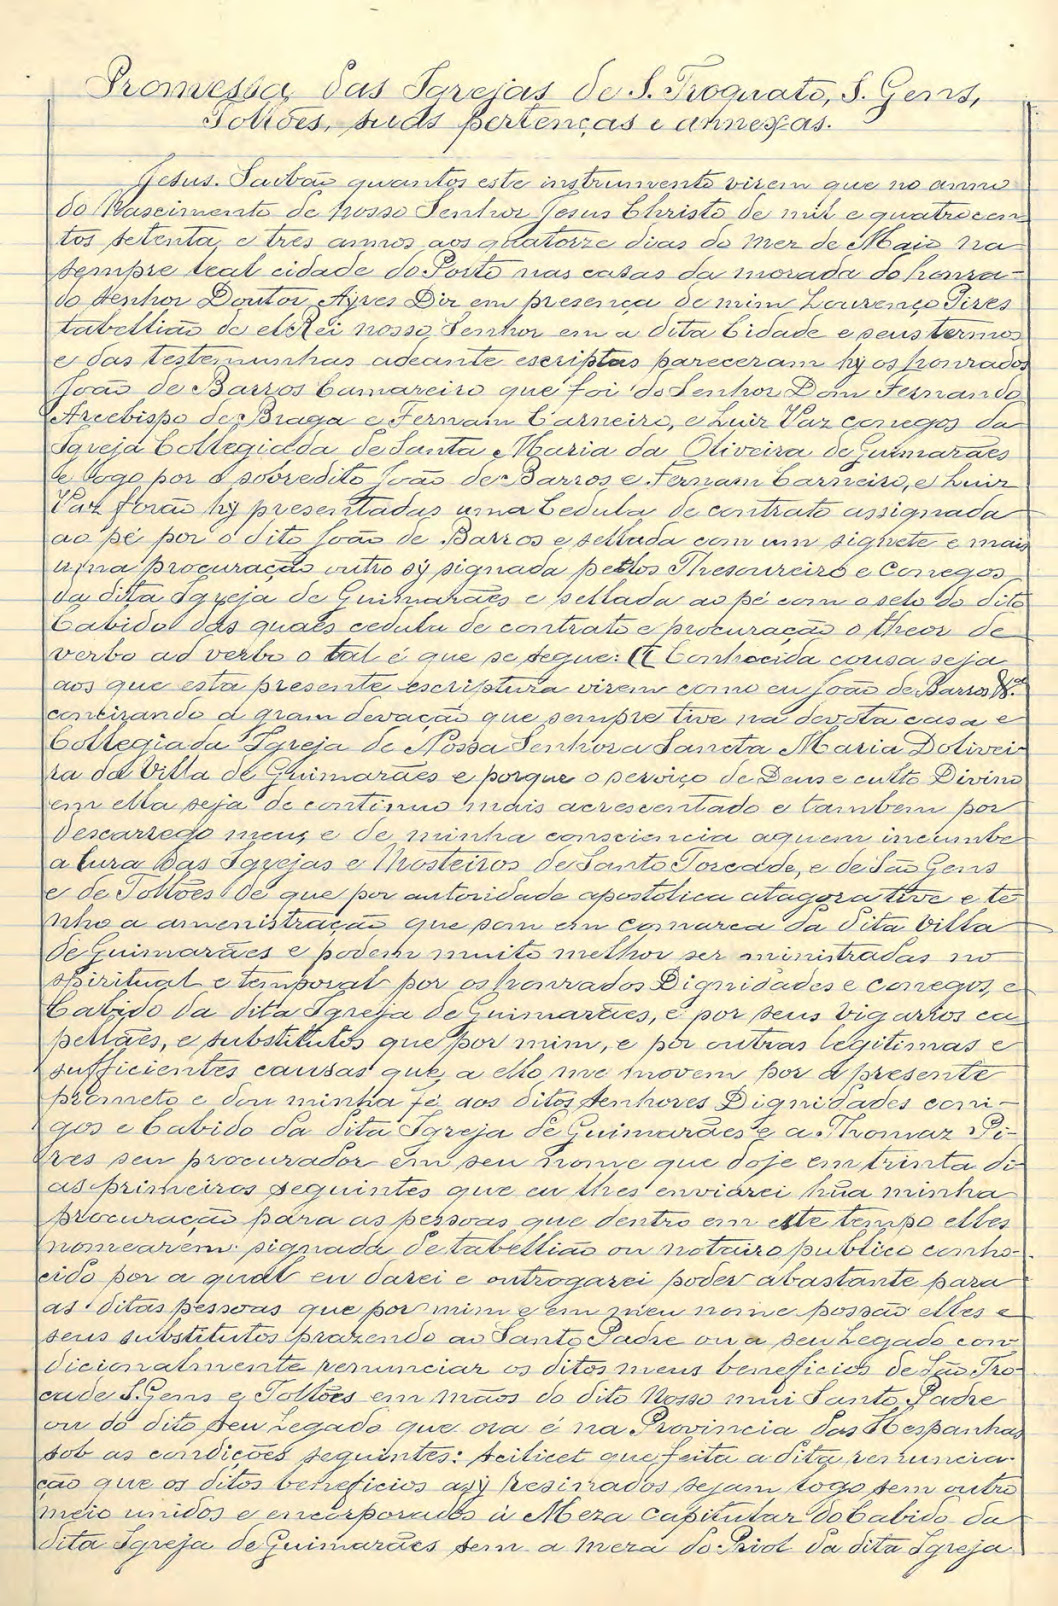 Promessa das Igrejas de S. Troquato, S. Gens,
Tollões, suas pertenças e annexas.
Jesus. Saibão quantos este instrumento virem que no anno
do Nascimento de Nosso Senhor Jesus Christo de mil e quatrocen
tos setenta e tres annos aos quatorze dias do mez de Maio na
sempre leal cidade do Porto nas casas da morada do honra-
do Senhor Doutor Ayres Diz em presença de mim Lourenço Pires
tabellião de elRei nosso Senhor em a dita Cidade e seus termos
e das testemunhas adeante escriptas pareceram hy os honrados
João de Barros Camareiro que foi do Senhor Dom Fernando
Arcebispo de Braga e Fernam Carneiro, e Luiz Vaz conegos da
Igreja Collegiada de Santa Maria da Oliveira de Guimarães
e logo por o sobredito João de Barros e Fernam Carneiro, e Luiz
Vaz forão hy presentadas uma Cedula de contrato assignada
ao pé por o dito João de Barros e sellada com um signete e mais
uma procuração outro sy signada pellos Thesoureiro e Conegos
da dita Igreja de Guimarães e sellada ao pé com o selo do dito
Cabido das quaes cedula de contrato e procuração o theor de
verbo ad verbo o tal é que se segue: Conhocida cousa seja
aos que esta presente escriptura virem como eu João de Barros
concirando a gram devação que sempre tive na devota casa e
Collegiada Igreja de Nossa Senhora Sancta Maria Dolivei
ra da Villa de Guimarães e porque o serviço de Deus e culto Divino
em ella seja de continuo mais acrescentado e tambem por
descarrego meu, e de minha consciencia aquem incumbe
a Cura das Igrejas e Mosteiros de Santo Torcade, e de São Gens
e de Tollões de que por autoridade apostolica atagora tive e te
nho a amenistração que som em comarca da dita Villa
de Guimarães e podem muito melhor ser ministradas no
spiritual e temporal por os honrados Dignidades e conegos, e
Cabido da dita Igreja de Guimarães, e por seus vigarios ca
pellães, e substitutos que por mim, e por outras legitimas e
sufficientes causas que a ello me movem por a presente
prometo e dou minha fé aos ditos Senhores Dignidades coni-
gos e Cabido da dita Igreja de Guimarães e a Thomaz Pi-
res seu procurador em seu nome que doje em trinta di
as primeiros seguintes que eu lhes enviarei hũa minha
procuração para as pessoas que dentro em este tempo elles
nomearem signada de tabellião ou notairo publico conho-
cido por a qual eu darei e outrogarei poder abastante para
as ditas pessoas que por mim e em meu nome possão elles e
seus substitutos prazendo ao Santo Padre ou a seu Legado con
dicionalmente renunciar os ditos meus beneficios de São Tro
cade S. Gens e Tollões em mãos do dito Nosso mui Santo Padre
ou do dito seu Legado que ora é na Provincia das Hespanhas
sob as condições seguintes: scilicet que feita a dita renuncia-
ção que os ditos beneficios asy resinados sejam logo sem outro
meio unidos e encorporados á Meza Capitular do Cabido da
dita Igreja de Guimarães sem a meza do Priol da dita Igreja